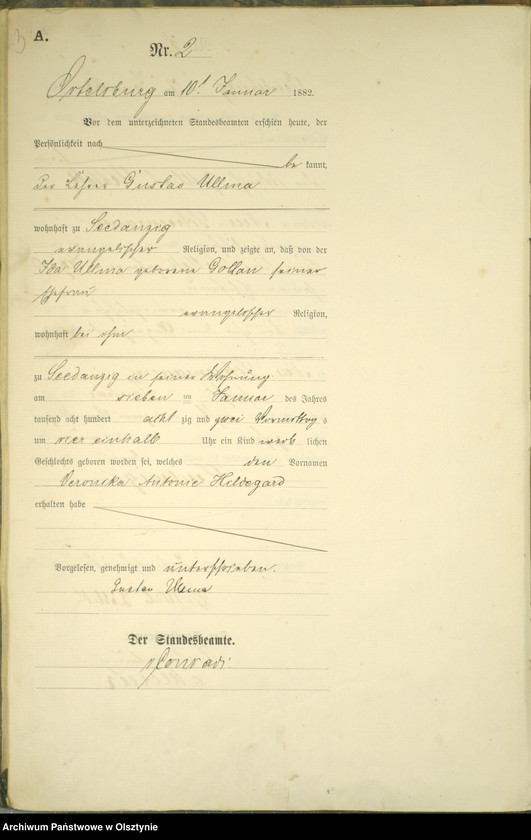 3
A.
Nr. 2
Ortelsburg am 10t Januar 1882.
Vor dem unterzeichneten Standesbeamten erschien heute, der
Persönlichkeit nach
be kannt,
der Lehrer Gustav Ullma
wohnhaft zu Seedanzig
evangelischer Religion, und zeigte an, daß von der
Ida Ullma geborene Gollan seiner
Ehefrau
evangelischer Religion,
wohnhaft bei ihm
zu Seedanzig in seiner Wohnung
am sieben ten Januar des Jahres
tausend acht hundert acht zig und zwei Vormittag s
um vier einhalb Uhr ein Kind weib lichen
Geschlechts geboren worden sei, welches den Vornamen
Veronika Antonie Hildegard
erhalten habe
Vorgelesen, genehmigt und unterschrieben.
Gustav Ullma
Der Standesbeamte.
Conradi
Archiwum Państwowe w Olsztynie